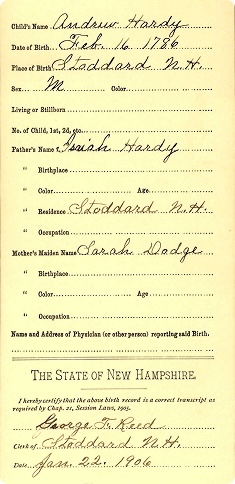 Child's Name Andrew Hardy
Date of Birth Feb. 16 1786
Place of Birth Stoddard N.H.
Sex M Color
Living or Stillborn
No. of Child, 1st, 2d, etc.
Father's Name Isaiah Hardy
" Birthplace
" Color Age
" Residence Stoddard N.H.
" Occupation
Mother's Maiden Name Sarah Dodge
" Birthplace
" Color Age
" Occupation
Name and Address of Physician (or other person) reporting said Birth.
THE STATE OF NEW HAMPSHIRE.
I hereby certify that the above birth record is a correct transcript as
required by Chap. 21, Session Laws, 1905.
George T. Reed
Clerk of Stoddard N.H.
Date Jan. 22. 1906